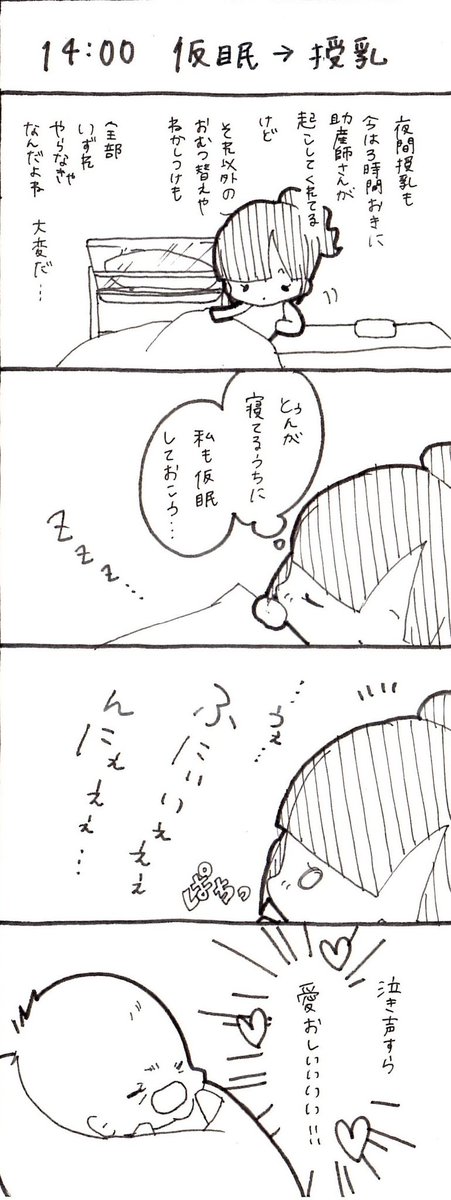 14:00 仮眠→授乳
夜間授乳も
今は3時間おきに
助産師さんが
起こしてくれてる
けど
それ以外の
おむつ替えや
ねかしつけも
全部
いずれ
やらなきゃ
なんだよね
大変だ…
とぅんが
寝てるうちに
私も仮眠
しておこう…
ZZZZ…
…うぇ…
ふにぃいぇぇぇ
んにぇぇぇ…
ぱちっ
泣き声すら
愛おしいぃぃぃ!!